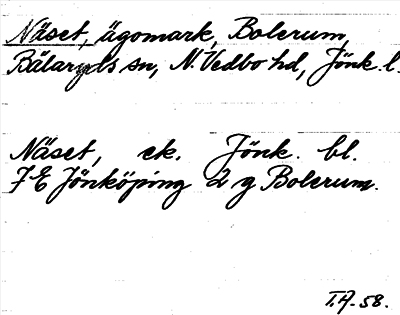 Näset, ägomark, Bolerum,
Bälaryds sn, N. Vedbo hd, Jönk. l.
Näset, ek. Jönk. bl.
7E Jönköping 2 g Bolerum.
T.A-58.